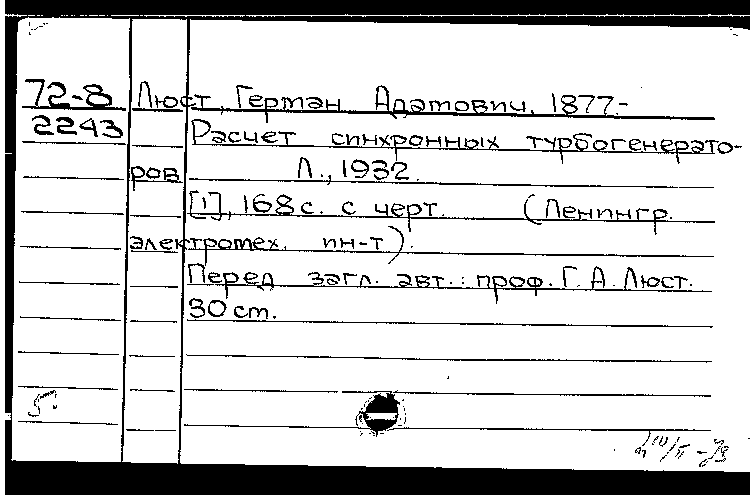 72-8 Люст, Герман Адамович, 1877-
2243 Расчет синхронных турбогенерато-
ров Л., 1932.
[1], 168 с. с черт. (Ленингр.
электротех. ин-т).
Перед загл. авт.: проф. Г. А. Люст.
30 см.